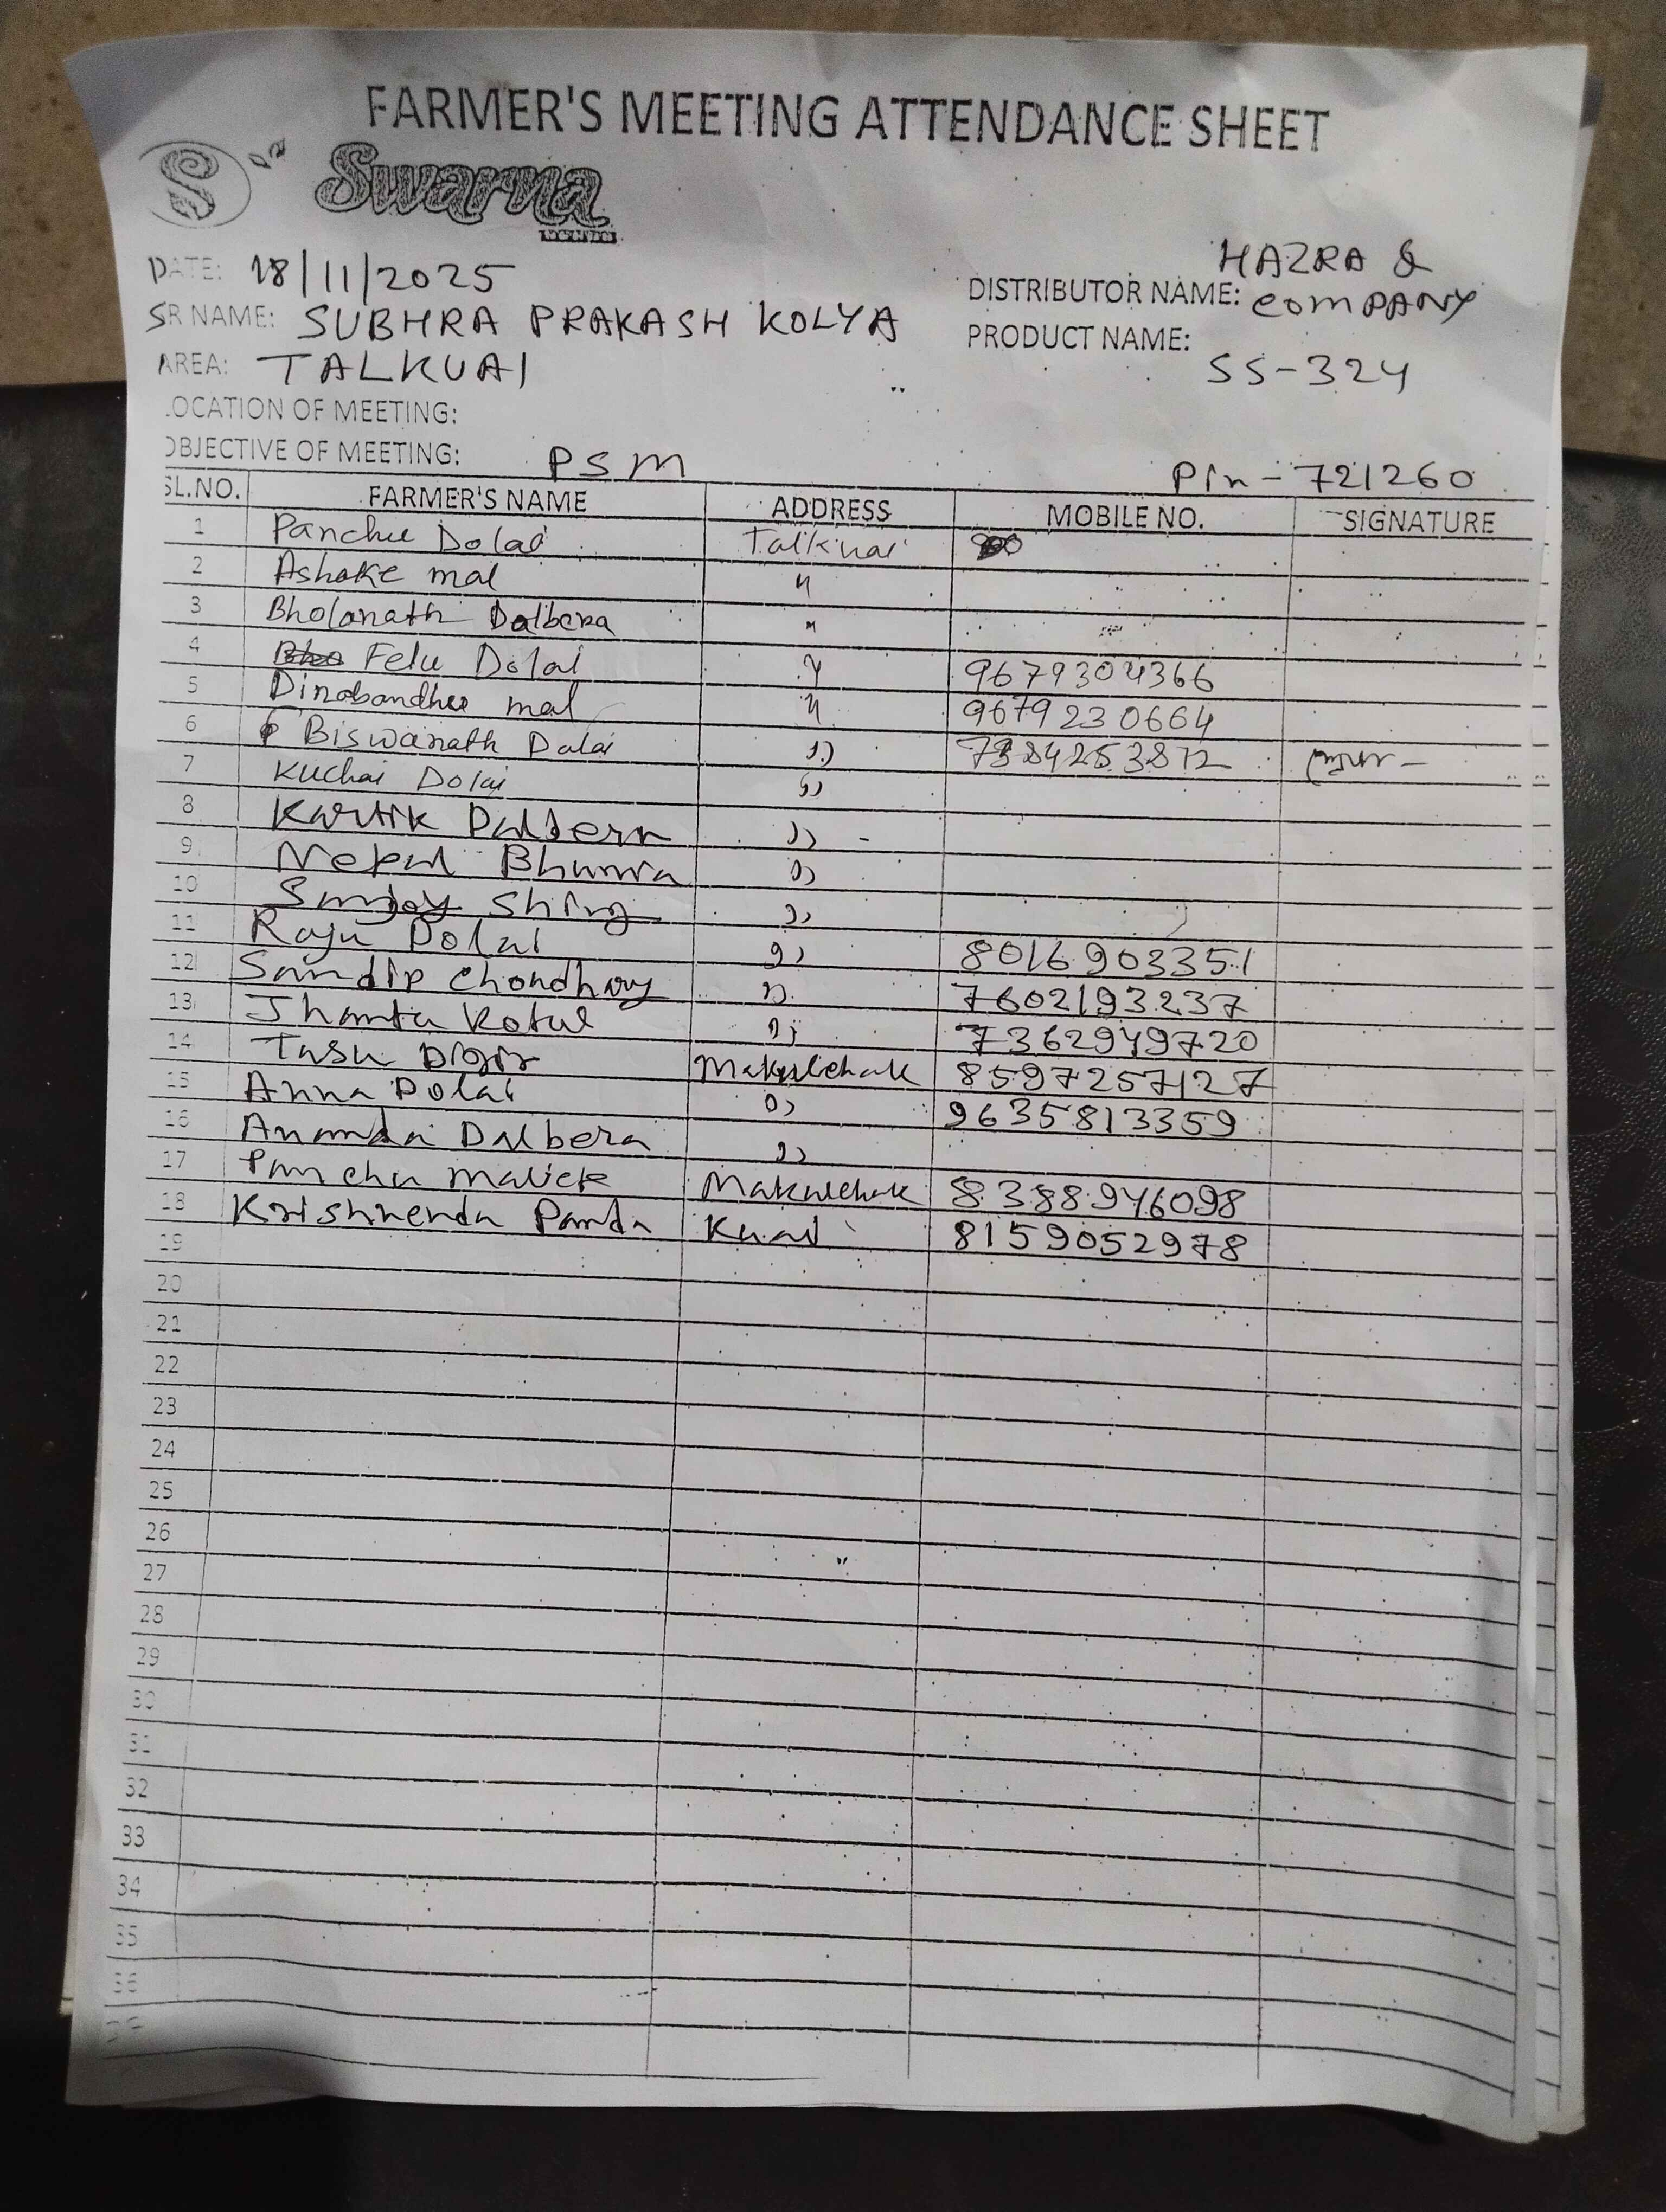 FARMER'S MEETING ATTENDANCE SHEET
S Swarna
DATE: 18/11/2025
DISTRIBUTOR NAME: HAZRA & COMPANY
SR NAME: SUBHRA PRAKASH KOLYA
PRODUCT NAME: SS-324
AREA: TALKUAI
LOCATION OF MEETING:
OBJECTIVE OF MEETING: PSM
Pin - 721260
SL.NO. FARMER'S NAME ADDRESS MOBILE NO. SIGNATURE
1 Panchu Dolai Talkuai
2 Ashoke mal "
3 Bholanath Dalbera "
4 Felu Dolai " 9679304366
5 Dinobandhu mal " 9679230664
6 Biswanath Dalai "
7 Kuchai Dolai "
8 Kartik Dalbera "
9 Nepal Bhunia "
10 Sanjoy Shing "
11 Raju Dolai " 8016903351
12 Sandip Chondhury " 7602193237
13 Jhantu Kotal " 7362949720
14 Tasu Digir Makulchak 8597257127
15 Anna Dolai " 9635813359
16 Ananda Dalbera "
17 Panchu Malick Makulchak 8388946098
18 Krishnendu Panda Kuai 8159052978
19
20
21
22
23
24
25
26
27
28
29
30
31
32
33
34
35
36